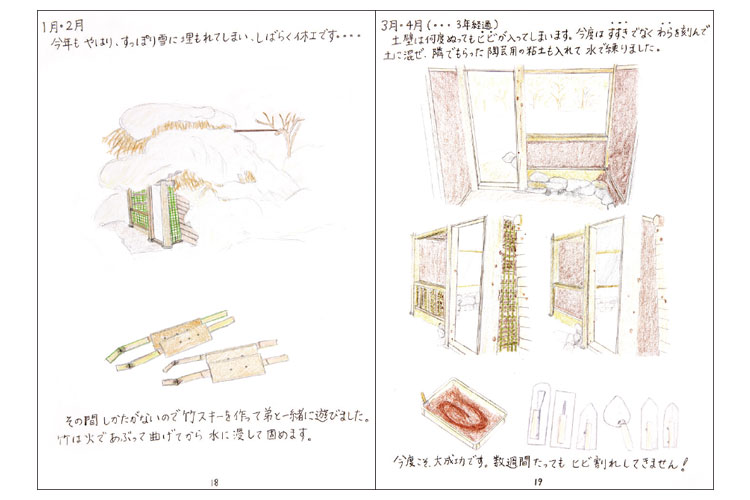 1月・2月
今年も やはり、すっぽり雪に埋もれてしまい、しばらく休工です・・・・
その間 しかたがないので 竹スキーを作って弟と一緒に遊びました。
竹は火であぶって曲げてから 水に浸して固めます。
18
3月・4月(・・・3年経過)
土壁は何度ぬってもヒビが入ってしまいます。今度は すすきでなく わらを刻んで
土に混ぜ、隣でもらった 陶芸用の粘土も入れて 水で練りました。
今度こそ、大成功です。数週間たっても ヒビ割れしてきません!
19